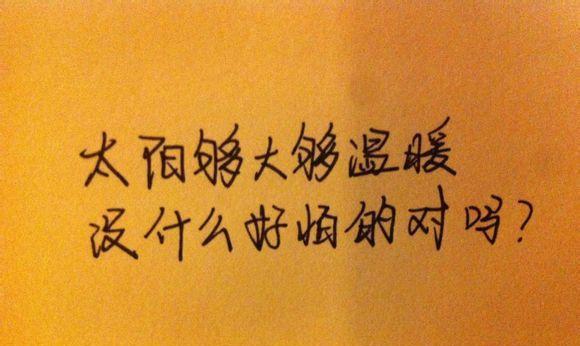 太阳够大够温暖
没什么好怕的对吗?